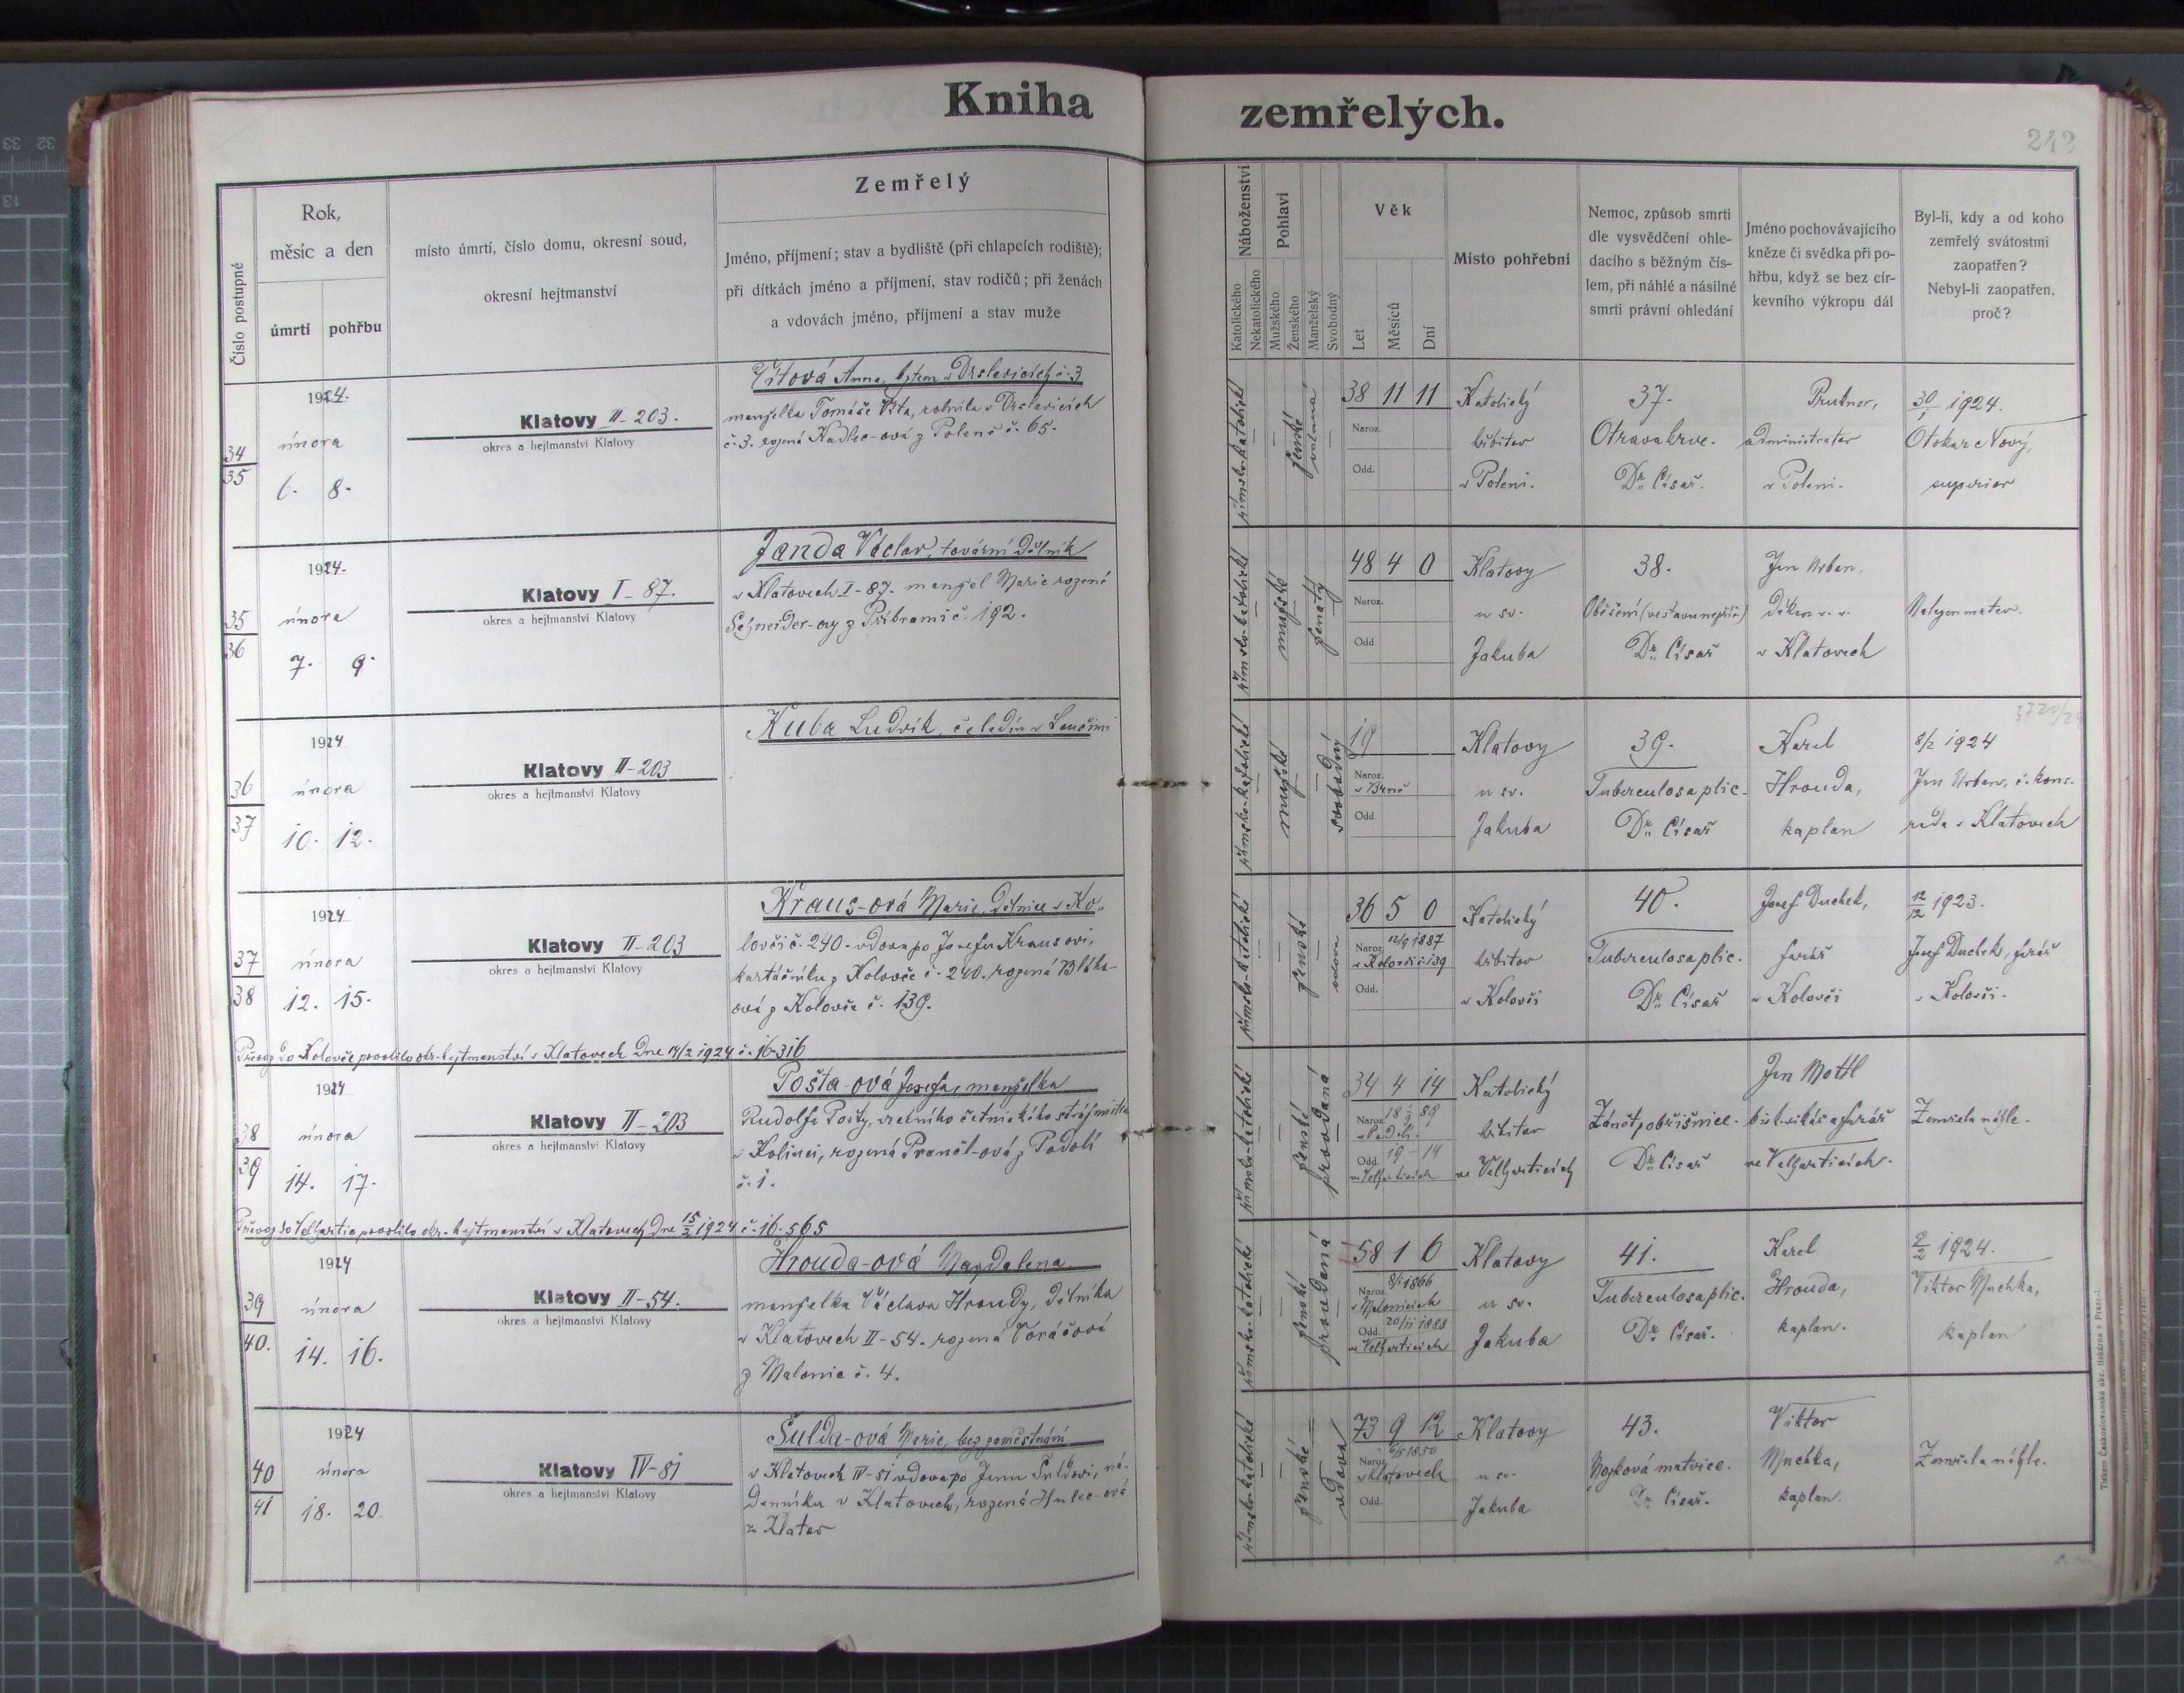 Kniha zemřelých.
242
Číslo postupné
Rok,
měsíc a den
úmrtí pohřbu
místo úmrtí, číslo domu, okresní soud,
okresní hejtmanství
Zemřelý
Jméno, příjmení; stav a bydliště (při chlapcích rodiště);
při dítkách jméno a příjmení, stav rodičů; při ženách
a vdovách jméno, příjmení a stav muže
Náboženství
Katolického
Nekatolického
Pohlaví
Mužského
Ženského
Manželský
Svobodný
Věk
Let
Měsíců
Dní
Místo pohřební
Nemoc, způsob smrti
dle vysvědčení ohle-
dacího s běžným čís-
lem, při náhlé a násilné
smrti právní ohledání
Jméno pochovávajícího
kněze či svědka při po-
hřbu, když se bez cír-
kevního výkropu dál
Byl-li, kdy a od koho
zemřelý svátostmi
zaopatřen?
Nebyl-li zaopatřen,
proč?
34
35
1924.
února
6. 8.
Klatovy II-203.
okres a hejtmanství Klatovy
Vítová Anna, bytem v Drslavicích č. 3
manželka Tomáše Víta, rolníka v Drslavicích
č. 3. rozená Kadlec-ová z Poleně č. 65.
římsko-katolické
ženské
38 11 11
Naroz.
Odd.
Katolický
hřbitov
v Poleni.
37.
Otrava krve.
Dr. Císař.
Prutner,
administrátor
v Poleni.
30/1 1924.
Otokar Nový,
superior
35
36
1924.
února
7. 9.
Klatovy I-87.
okres a hejtmanství Klatovy
Janda Václav, tovární dělník
v Klatovech I-87. manžel Marie rozené
Schneider-ovy z Příbrami č. 192.
římsko-katolické
mužské
ženatý
48 4 0
Naroz.
Odd
Klatovy
u sv.
Jakuba
38.
Dr. Císař
Jan Urban,
děkan
v Klatovech
Nalezen mrtev.
36
37
1924
února
10. 12.
Klatovy II-203
okres a hejtmanství Klatovy
Kuba Ludvík, čeledín v
římsko-katolické
mužské
svobodný
19
Naroz.
v Brně
Odd.
Klatovy
u sv.
Jakuba
39.
Tuberculosa plic.
Dr. Císař
Karel
Hrouda,
kaplan
8/2 1924
Jan Urban, b. kons.
rada v Klatovech
37
38
1924
února
12. 15.
Klatovy II-203
okres a hejtmanství Klatovy
Kraus-ová Marie, dělnice v Ko-
lovči č. 240. vdova po Josefu Krausovi,
kartáčníku z Kolovče č. 240. rozená Bláha-
ová z Kolovče č. 139.
římsko-katolické
ženské
vdova
36 5 0
Naroz. 12/9 1887
v Kolovči č. 139
Odd.
Katolický
hřbitov
v Kolovči
40.
Tuberculosa plic.
Dr. Císař
Josef Duchek,
farář
v Kolovči
12/12 1923.
Josef Duchek, farář
v Kolovči.
Převoz do Kolovče povolilo okr. hejtmanství v Klatovech dne 14/2 1924 č. 16316
38
39
1924
února
14. 17.
Klatovy II-203
okres a hejtmanství Klatovy
Pošta-ová Josefa, manželka
Rudolfa Pošty, vrchního četnického strážmistra
v Kolinci, rozená Prančl-ová z Podolí
č. 1.
římsko-katolické
ženské
provdaná
34 4 14
Naroz. 18 89
v Podolí.
Odd. 19-14
ve Velharticích
Katolický
hřbitov
ve Velharticích
Zánět pobřišnice.
Dr. Císař
Jan Mottl
bisk. vikář a farář
ve Velharticích.
Zemřela náhle.
Převoz do Velhartic povolilo okr. hejtmanství v Klatovech dne 15/2 1924 č. 16.565
39
40.
1924
února
14. 16.
Klatovy II-54.
okres a hejtmanství Klatovy
Hrouda-ová Magdalena
manželka Václava Hroudy, dělníka
v Klatovech II-54. rozená Toráčová
z Malonic č. 4.
římsko-katolické
ženské
provdaná
58 1 6
Naroz. 8/1 1866
v Malonicích
Odd. 20/11 1888
ve Velharticích
Klatovy
u sv.
Jakuba
41.
Tuberculosa plic.
Dr. Císař.
Karel
Hrouda,
kaplan.
2/2 1924.
Viktor Muchka,
kaplan
40
41
1924
února
18. 20
Klatovy IV-81
okres a hejtmanství Klatovy
Šulda-ová Marie, bez zaměstnání
v Klatovech IV-81 vdova po Janu Šuldovi, ná-
denníku v Klatovech, rozená Hulec-ová
z Klatov
římsko-katolické
ženské
vdova
73 9 12
Naroz. 6/5 1850
v Klatovech
Odd.
Klatovy
u sv.
Jakuba
43.
Mozková mrtvice.
Dr. Císař.
Viktor
Muchka,
kaplan.
Zemřela náhle.
Tiskem Československá akc. tiskárna v Praze-I